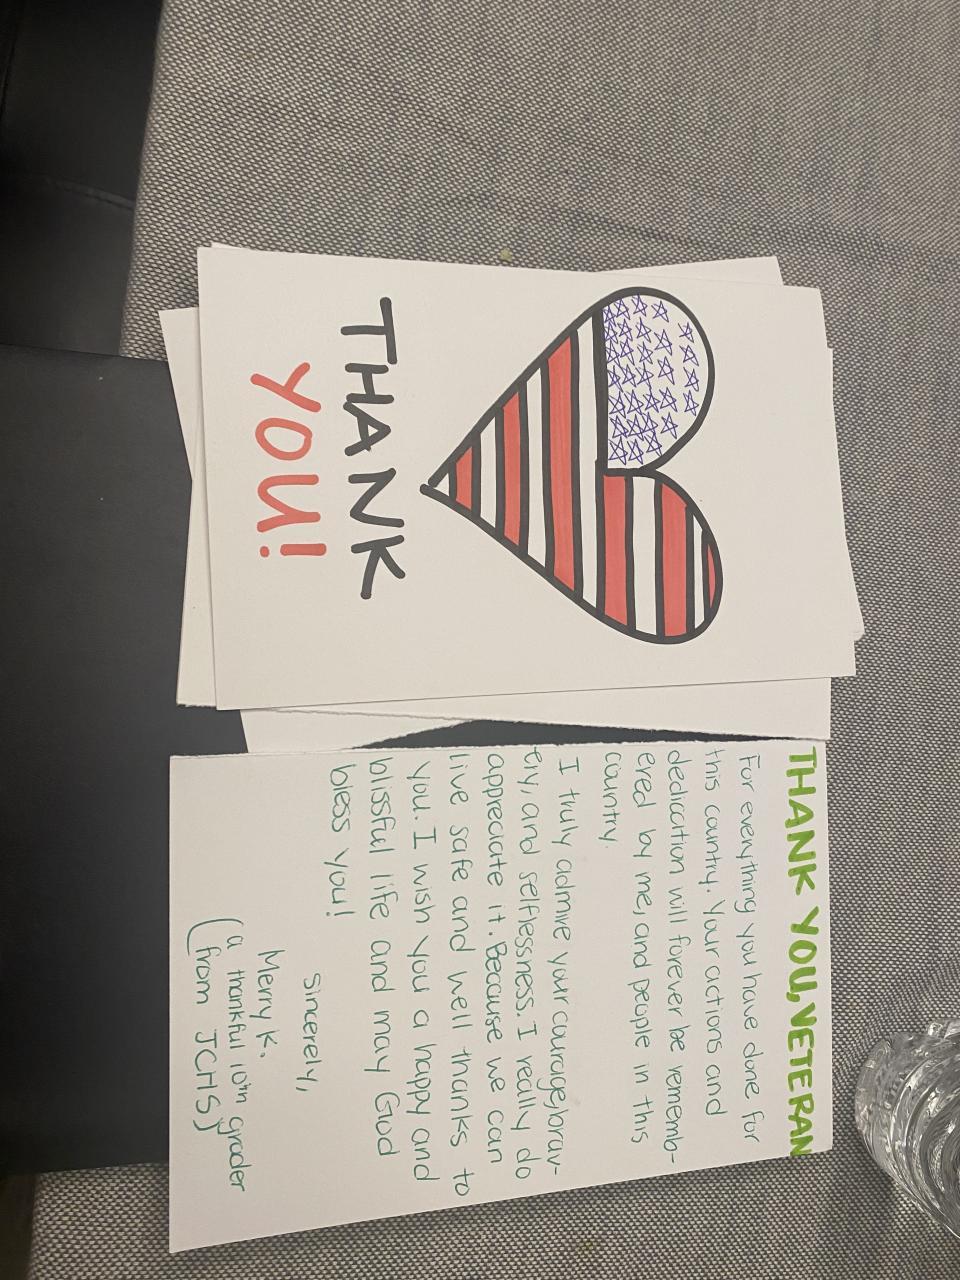 THANK
YOU!
THANK YOU, VETERAN
For everything you have done for
this country. Your actions and
dedication will forever be rememb-
ered by me, and people in this
country.
I truly admire your courage, brav-
ery, and selflessness. I really do
appreciate it. Because we can
live safe and well thanks to
you. I wish you a happy and
blissful life and may God
bless you!
Sincerely,
Merry K.
(a thankful 10th grader
from JCHS)